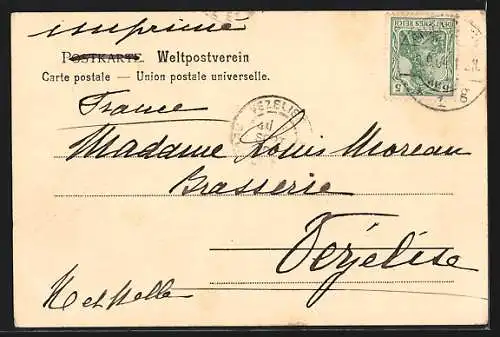 imprimé
POSTKARTE. Weltpostverein
Carte postale — Union postale universelle.
France
Madame Louis Moreau
Brasserie
Vézelise
DEUTSCHES REICH
5 5
VEZELIS